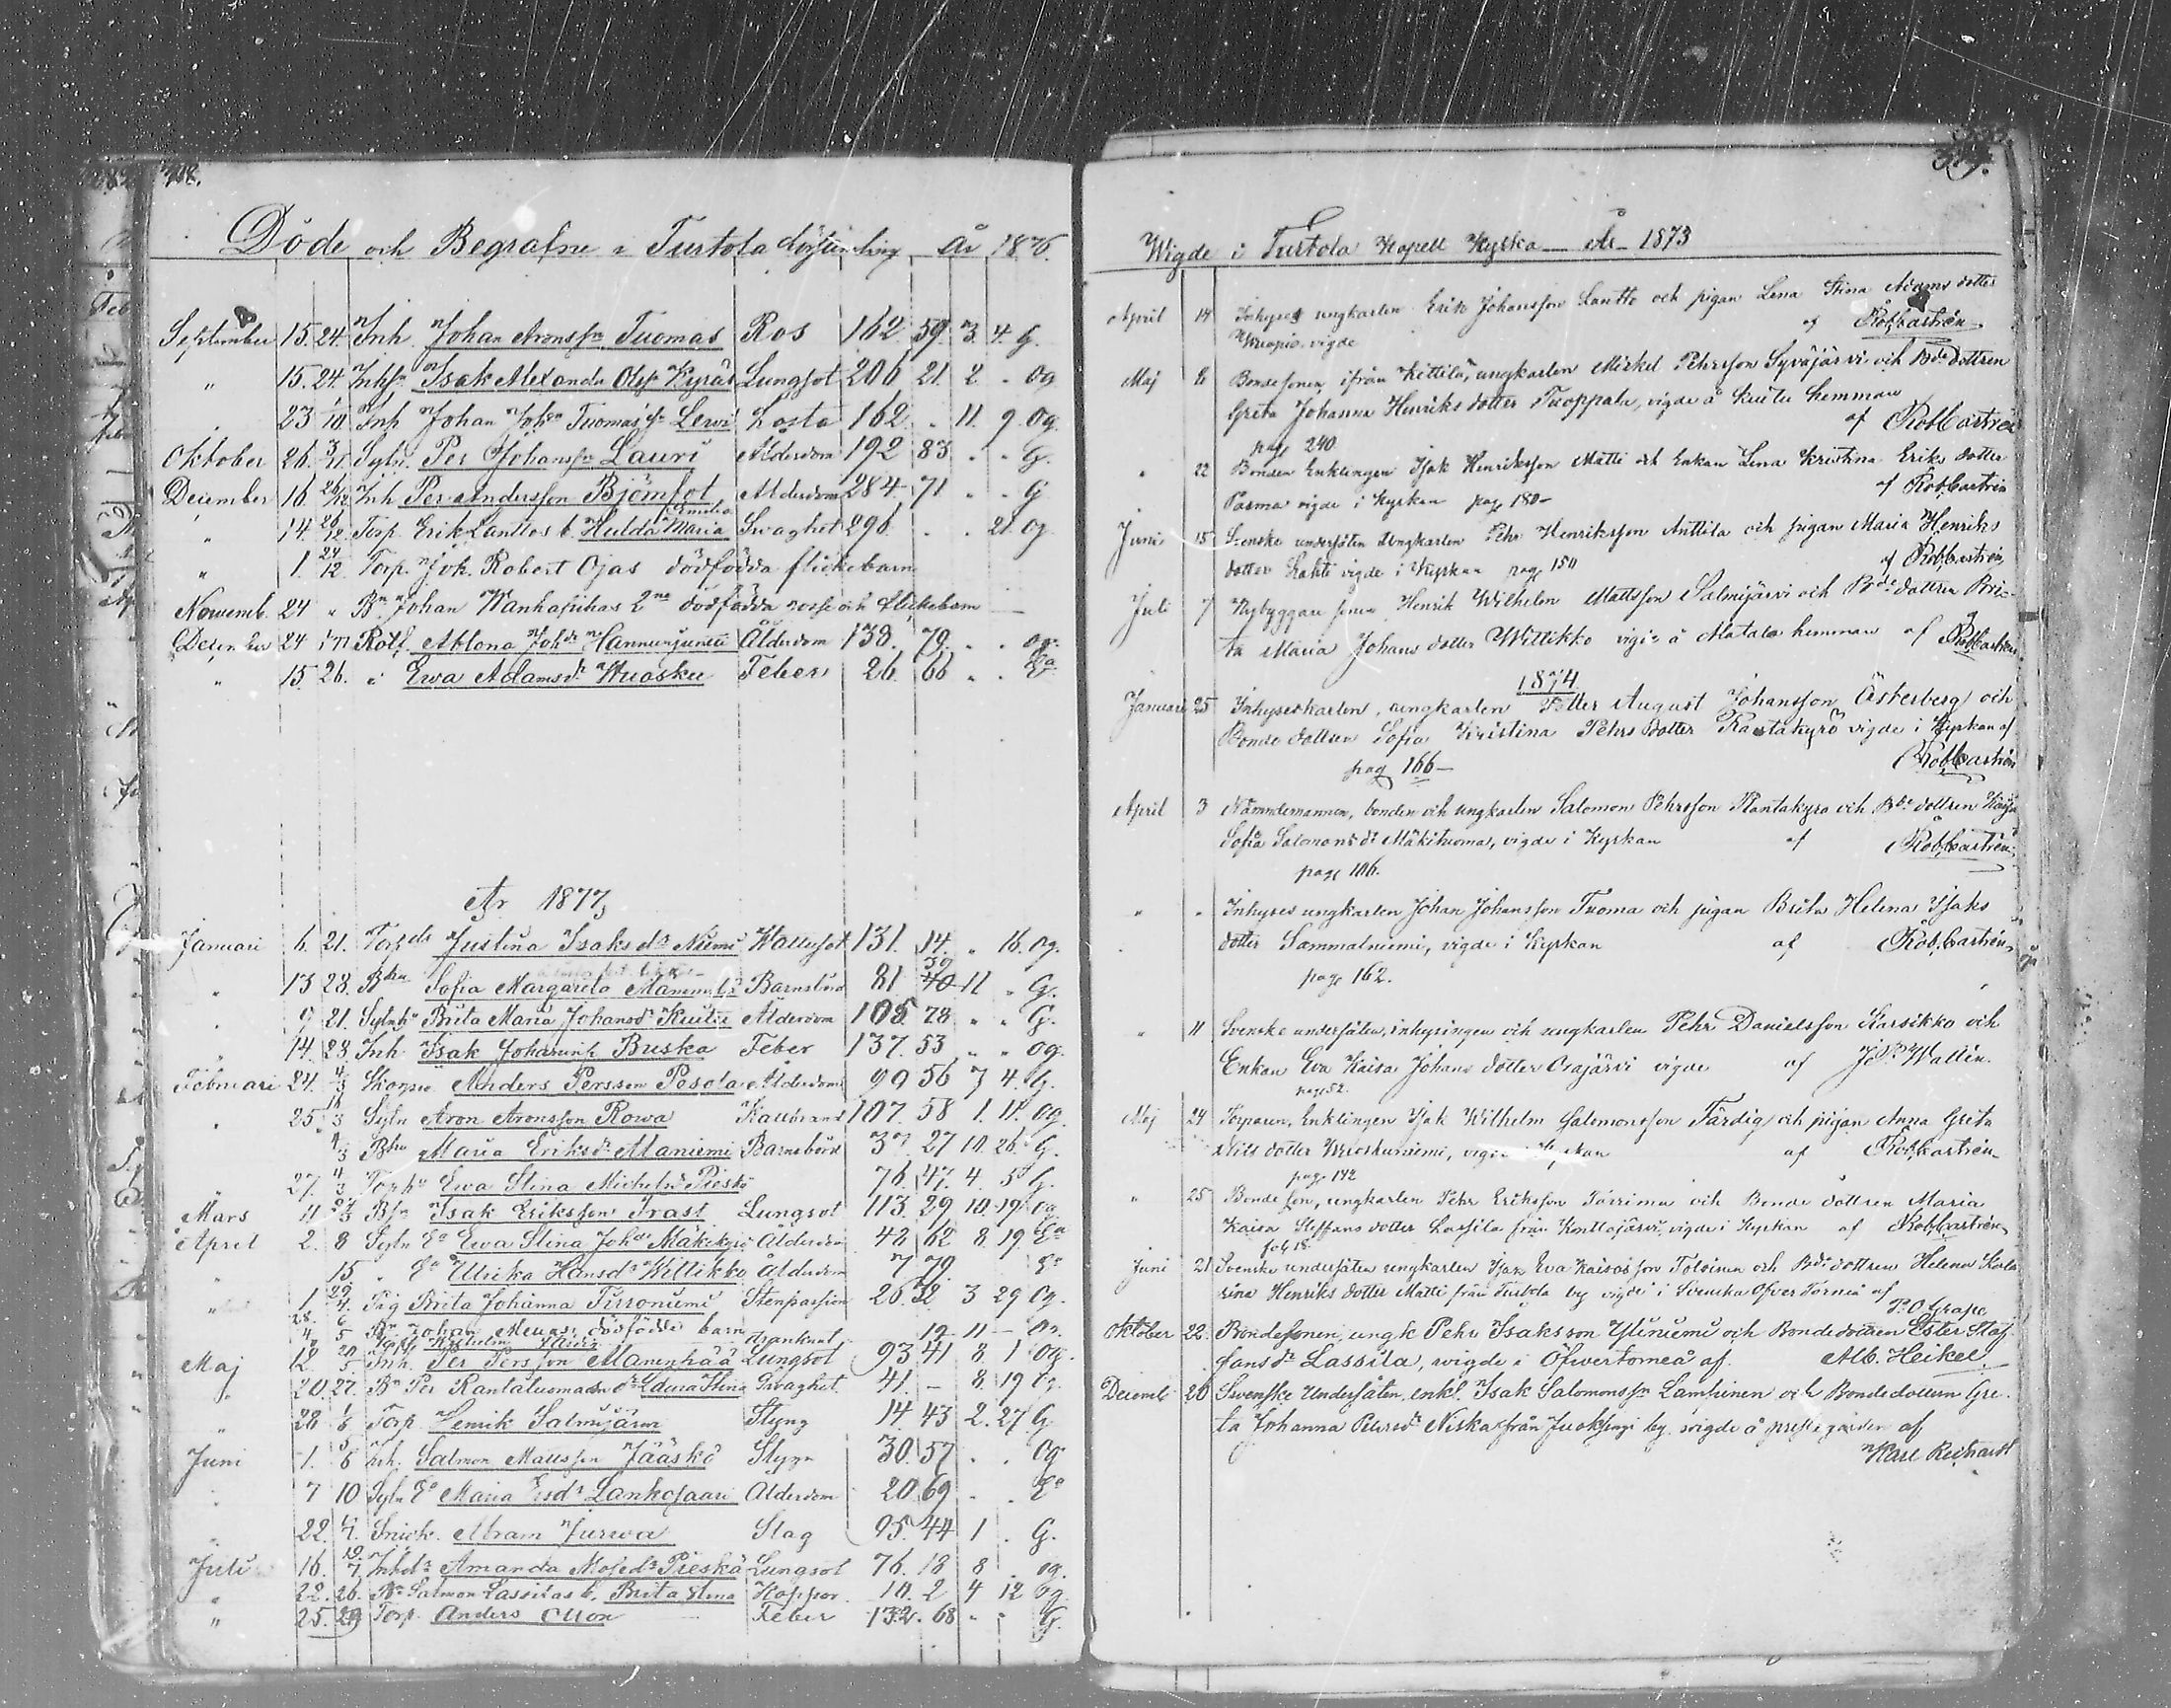 Döde och Begrafne i Turtola År 1876.
September 15. 24. Inh. Johan Aronssn Tuomas Ros 162. 59. 3. 4. G.
" 15. 24. Isak Alexander Olofs Kyrö Lungsot 206 21. 2 . og
23 1/10 Inh Johan Tuomas Lewi Hosta 162. . 11. 9. og.
Oktober 26. 3/11 Sytn. Per Johanssn Lauri Ålderdom 192 83 . . G.
December 16. 26/12 Inh Per Andersson Björnfot Ålderdom 284 71 . . G
" 14. 26/12 Torp. Erik Lanttos b. Hulda Emilia Maria Swaghet 296. . . 21. og.
" 1. 24/12 Torp. Joh. Robert Ojas dödfödda flickebarn
Novemb. 24 " Bn Johan Wanhapihas 2ne dödfödda gosse och flickebarn
December 24 Rotf. Johdr Hannunjuntti Ålderdom 138. 79. . . og.
" 15. 26. Ewa Adamsdr Wuoskee Feber 26. 66 . . Ea
År 1877,
Januari 6. 21. Justina Isaksdr Niemi Wattusot 131. 14. . 16. og.
" 13 28. Bhu Sofia Margareta Barnsbörd 81 39 40 11 . G.
" 9 21. Brita Maria Johansdr Kuitti Ålderdom 105. 78 . . G.
" 14. 23. Inh Isak Buska Feber 137. 53 . . og.
Februari 24. 4/3 Anders Persson Pesola Ålderdom 99 56 7 4. G.
" 25. Sytn Aron Aronsson Rowa Kallbrand 107. 58 1. 11. og.
4/3 Bhu Maria Eriksdr Maniemi Barnsbörd 37 27 10. 26. G.
27. 4/3 Ewa Stina Michelsdr Pieskä 76. 47. 4. 5 G.
Mars 11 Isak Eriksson Trast Lungsot 113. 29 10. 19. og
April 2. 8 Sytn Ea Ewa Stina Johdr Mäkikyrö Ålderdom 48 62 8. 19. Ea
" 15. " Ea Ulrika Hansdr Wittikko Ålderdom 7 79. Ea
" 1 29/4 Pig Brita Johanna Tirroniemi Steinpassion 26 32 3 29 og.
dödfödde barn
Maj 12. 20/5 Inh. Per Persson Manenhää Lungsot 93 41 8. 1 og.
" 20. 27. Bn Per Rantatuomas dr Edura Stina Swaghet. 41. – 8. 19 og.
" 28 1/6 Torp. Henrik Salmijärvi Styng 14. 43 2. 27 G.
Juni 1. 3/6 Inh. Salmon Mattsson Jääskö Styng 30. 57. . . og
" 7 10 Sytn Ea Maria Ersdr Lankosaari Ålderdom 20. 69. . . Ea
22. 1/7. Snick. Abram Jurva Slag 95. 44 1 . G.
Juli 16. 19/7 Inhdr Amanda Mosesdr Pieskä Lungsot 76. 18 8 . og.
" 22. 26. Bn Salmon Lassilas b. Brita Stina Koppor 10. 2 4 12 og
" 25. 29 Torp. Anders Ollon Feber 132. 68 . . G.
Wigde i Turtola Kapell Kyrka – År – 1873
April 14 Inhyses ungkarlen Erik Johansson Lantto och pigan Lena Stina Adams dotter
vigde af Rob. Castrén
Maj 8 Bondesonen ifrån Kittilä, ungkarlen Mickel Pehrsson Syväjärvi och Bde dottren
Greta Johanna Henriks dotter Tuoppala, vigde å Kuitu hemman
af Rob Castrén
pag 240
" 22 Bonden Enklingen Isak Henriksson Matti och Enkan Lena Kristina Eriks dotter
Parma vigde i Kyrkan pag 180– af Rob. Castrén
Juni 15 Svenske undersåten Ungkarlen Pehr Henriksson Anttila och pigan Maria Henriks
dotter Lahti vigde i Kyrkan pag 150 af Rob. Castrén
Juli 7 Nybyggare sonen Henrik Wilhelm Mattsson Salmijärvi och Bde dottren Bri-
ta Maria Johans dotter Wittikko vigde å Matala hemman af Rob Castrén
1874
Januari 25 Inhyseskarlen, ungkarlen Petter August Johansson Österberg och
Bonde dottren Sofia Kristina Pehrs dotter Rantakyrö vigde i Kyrkan af
pag 166 – Rob. Castrén
April 3 Nämndemannen, bonden och ungkarlen Salomon Pehrsson Rantakyrö och Bde dottren Kaisa
Sofia Salomons dr Mäkituoma, vigde i Kyrkan af Rob. Castrén
pag 106.
" " Inhyses ungkarlen Johan Johansson Tuoma och pigan Brita Helena Isaks
dotter Sammalniemi, vigde i Kyrkan af Rob. Castrén
pag 162.
" 11 Svenske undersåten, inhysingen och ungkarlen Pehr Danielsson Karsikko och
Enkan Eva Kaisa Johans dotter Orajärvi vigde af Wallin.
pag 52.
Maj 24 Torparen, Enklingen Isak Wilhelm Salomonsson Färdig och pigan Anna Greta
Nils dotter vigde i Kyrkan af Rob. Castrén
pag 142
" 25 Bonde son, ungkarlen Pehr Eriksson Törrimä och Bonde dottren Maria
Kaisa Steffans dotter Lassila från Konttajärvi, vigde i Kyrkan af Rob. Castrén
fol. 18
Juni 21 Svenske undersåten ungkarlen Isak Eva Kaisasson Toloinen och Bde dottren Helena Kata-
rina Henriks dotter Matti från Turtola by vigde i Svenska Öfver Torneå af
P. O. Grape
Oktober 22. Bondesonen, ungk Pehr Isaksson Yliniemi och Bondedottren Ester Staf-
fansdr Lassila, wigde i Öfwertorneå af. Alb. Heikel
Decemb 20 Swenske Undersåten, enkl. Isak Salomonssn Lampinen och Bondedottren Gre-
ta Johanna Petersdr Niska från Juoksengi by. wigde å prestegården af
Karl Reichardt